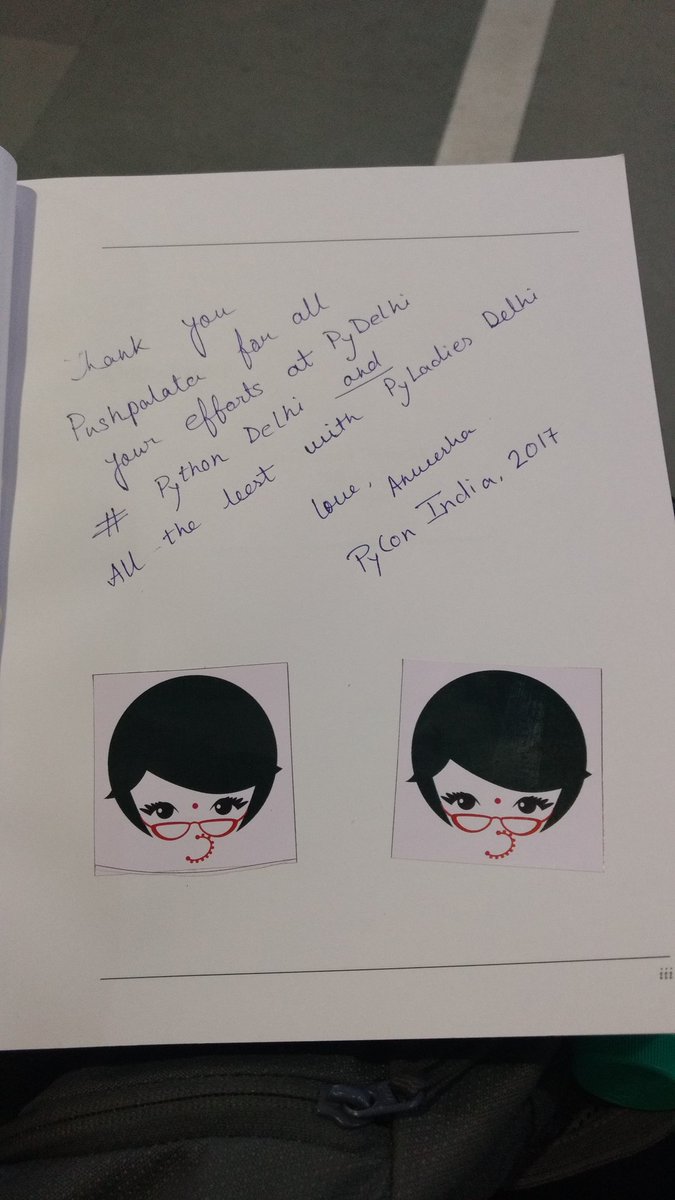 Thank you
Pushpalata for all
your efforts at PyDelhi
# Python Delhi and
All the best with PyLadies Delhi
love, Anwesha
PyCon India, 2017
iii